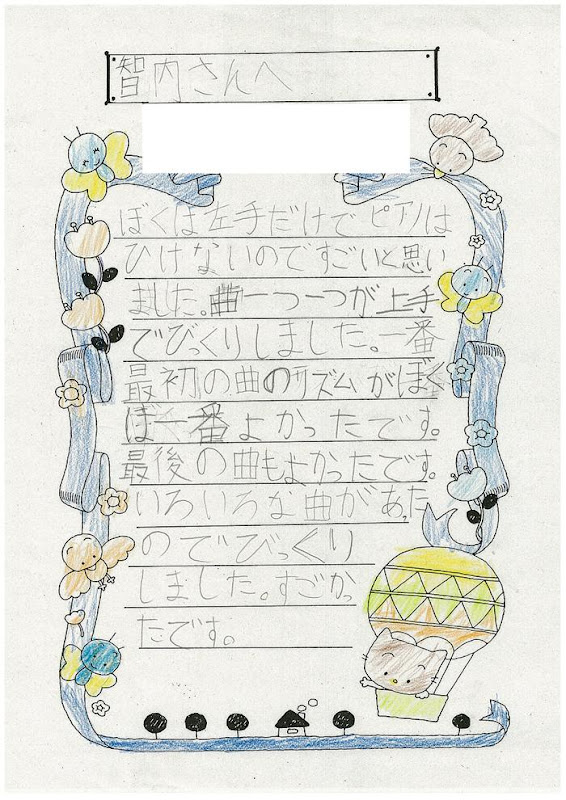 智内さんへ
ぼくは左手だけでピアノは
ひけないのですごいと思い
ました。曲一つ一つが上手
でびっくりしました。一番
最初の曲のリズムがぼく
は一番よかったです。
最後の曲もよかったです。
いろいろな曲があった
のでびっくり
しました。すごかっ
たです。